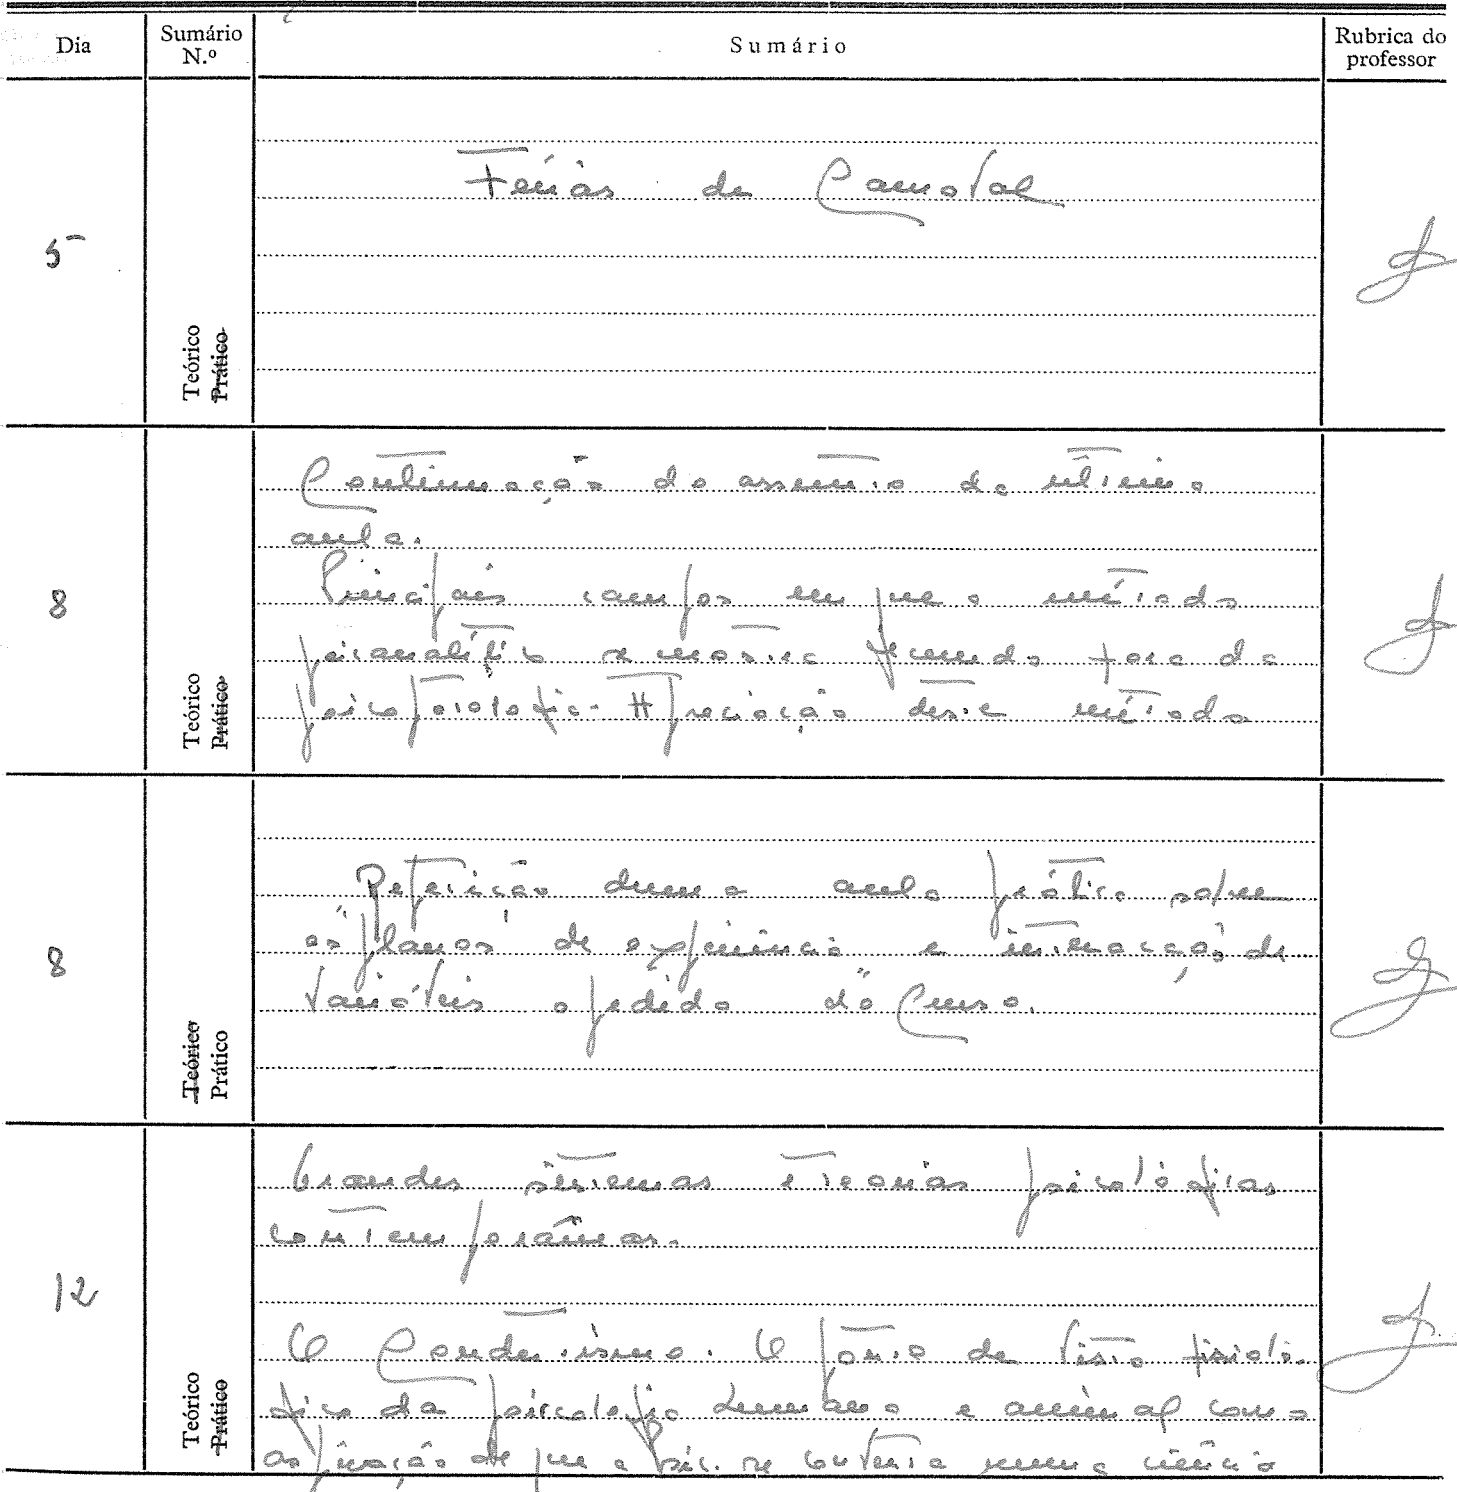 Dia
Sumário N.º
Sumário
Rubrica do professor
5
Teórico
Prático
Férias do Carnaval
8
Teórico
Prático
Continuação do assunto da última
aula.
Principais campos em que o método
psicanalítico se mostra fecundo fora da
psicopatologia - Apreciação deste método
8
Teórico
Prático
Repetição duma aula prática sobre
os "planos" de experiência e interacção de
variáveis a pedido do Curso.
12
Teórico
Prático
Grandes sistemas e teorias psicológicas
contemporâneas.
O Condutismo. O ponto de vista fisioló-
gico da psicologia humana e animal como
aspiração de que a Psic. se converta numa ciência